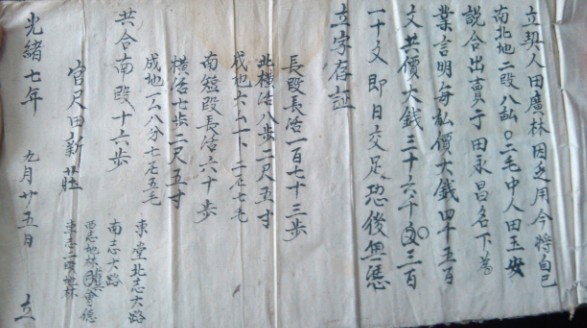 立契人田廣林因乏用今將自己
南北地二段八畝〇二毛中人田玉安
說合出賣于田永昌名下為
業言明每畝價大錢四千五百
文共價大錢三十六千〇三百
一十文即日交足恐後無憑
立字存証
長段長活一百七十三步
北橫活八步二尺五寸
成地六厶一卜二毛七毛
南短段長活六十步
橫活七步二尺五寸
成地一厶八分七毛五毛
共合南段十六步
官尺田新莊
東堂北志大路
南志大路
西志地林
東志二環地林
光緒七年 九月廿五日 立